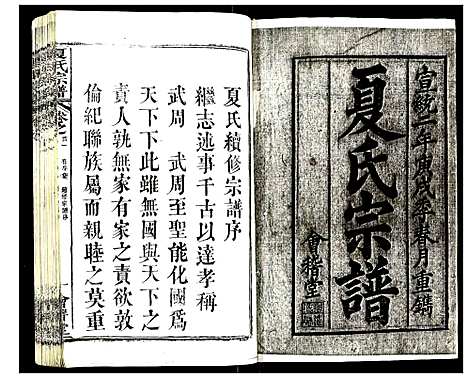 宣統二年庚戌季春月重鐫
夏氏宗譜
會稽堂
夏氏續修宗譜序
繼志述事千古以達孝稱
武周　武周至聖能化國為
天下下此雖無國與天下之
責人孰無家有家之責欲敦
倫紀聯族屬而親睦之莫重
夏氏宗譜
卷之
一 會稽堂